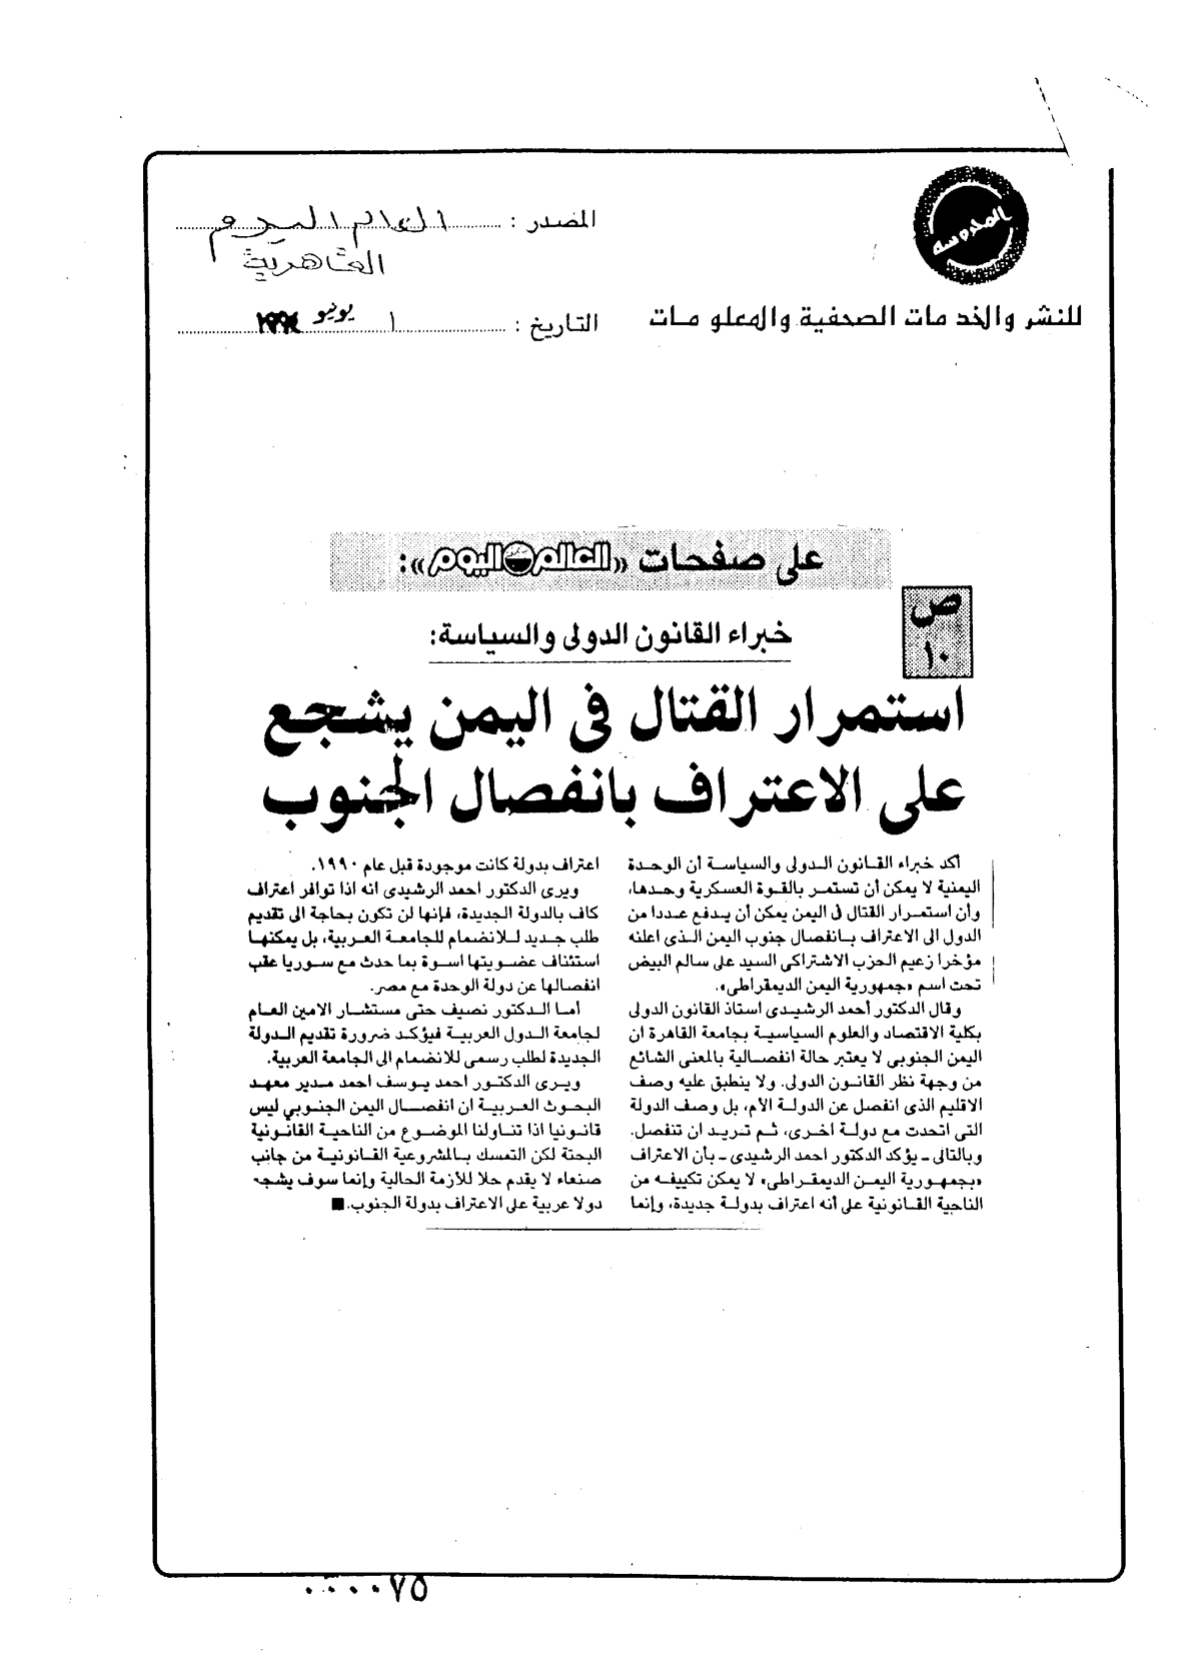 المحروسة
للنشر والخدمات الصحفية والمعلومات
المصدر : العالم اليوم
القاهرية
التاريخ : ١ يونيو ١٩٩٤
على صفحات «العالم اليوم»:
ص
١٠
خبراء القانون الدولى والسياسة:
استمرار القتال فى اليمن يشجع
على الاعتراف بانفصال الجنوب
أكد خبراء القانون الدولى والسياسة أن الوحدة
اليمنية لا يمكن أن تستمر بالقوة العسكرية وحدها،
وأن استمرار القتال فى اليمن يمكن أن يدفع عددا من
الدول الى الاعتراف بانفصال جنوب اليمن الذى اعلنه
مؤخرا زعيم الحزب الاشتراكى السيد على سالم البيض
تحت اسم «جمهورية اليمن الديمقراطى».
وقال الدكتور أحمد الرشيدى استاذ القانون الدولى
بكلية الاقتصاد والعلوم السياسية بجامعة القاهرة ان
اليمن الجنوبي لا يعتبر حالة انفصالية بالمعنى الشائع
من وجهة نظر القانون الدولى. ولا ينطبق عليه وصف
الاقليم الذى انفصل عن الدولة الأم، بل وصف الدولة
التى اتحدت مع دولة اخرى، ثم تريد ان تنفصل.
وبالتالى ـ يؤكد الدكتور احمد الرشيدى ـ بأن الاعتراف
«بجمهورية اليمن الديمقراطى» لا يمكن تكييفه من
الناحية القانونية على أنه اعتراف بدولة جديدة، وإنما
اعتراف بدولة كانت موجودة قبل عام ١٩٩٠.
ويرى الدكتور احمد الرشيدى انه اذا توافر اعتراف
كاف بالدولة الجديدة، فإنها لن تكون بحاجة الى تقديم
طلب جديد للانضمام للجامعة العربية، بل يمكنها
استئناف عضويتها اسوة بما حدث مع سوريا عقب
انفصالها عن دولة الوحدة مع مصر.
أما الدكتور نصيف حتى مستشار الامين العام
لجامعة الدول العربية فيؤكد ضرورة تقديم الدولة
الجديدة لطلب رسمى للانضمام الى الجامعة العربية.
ويرى الدكتور احمد يوسف احمد مدير معهد
البحوث العربية ان انفصال اليمن الجنوبي ليس
قانونيا اذا تناولنا الموضوع من الناحية القانونية
البحتة لكن التمسك بالمشروعية القانونية من جانب
صنعاء لا يقدم حلا للأزمة الحالية وإنما سوف يشجع
دولا عربية على الاعتراف بدولة الجنوب.■
٠٠٠٠٧٥